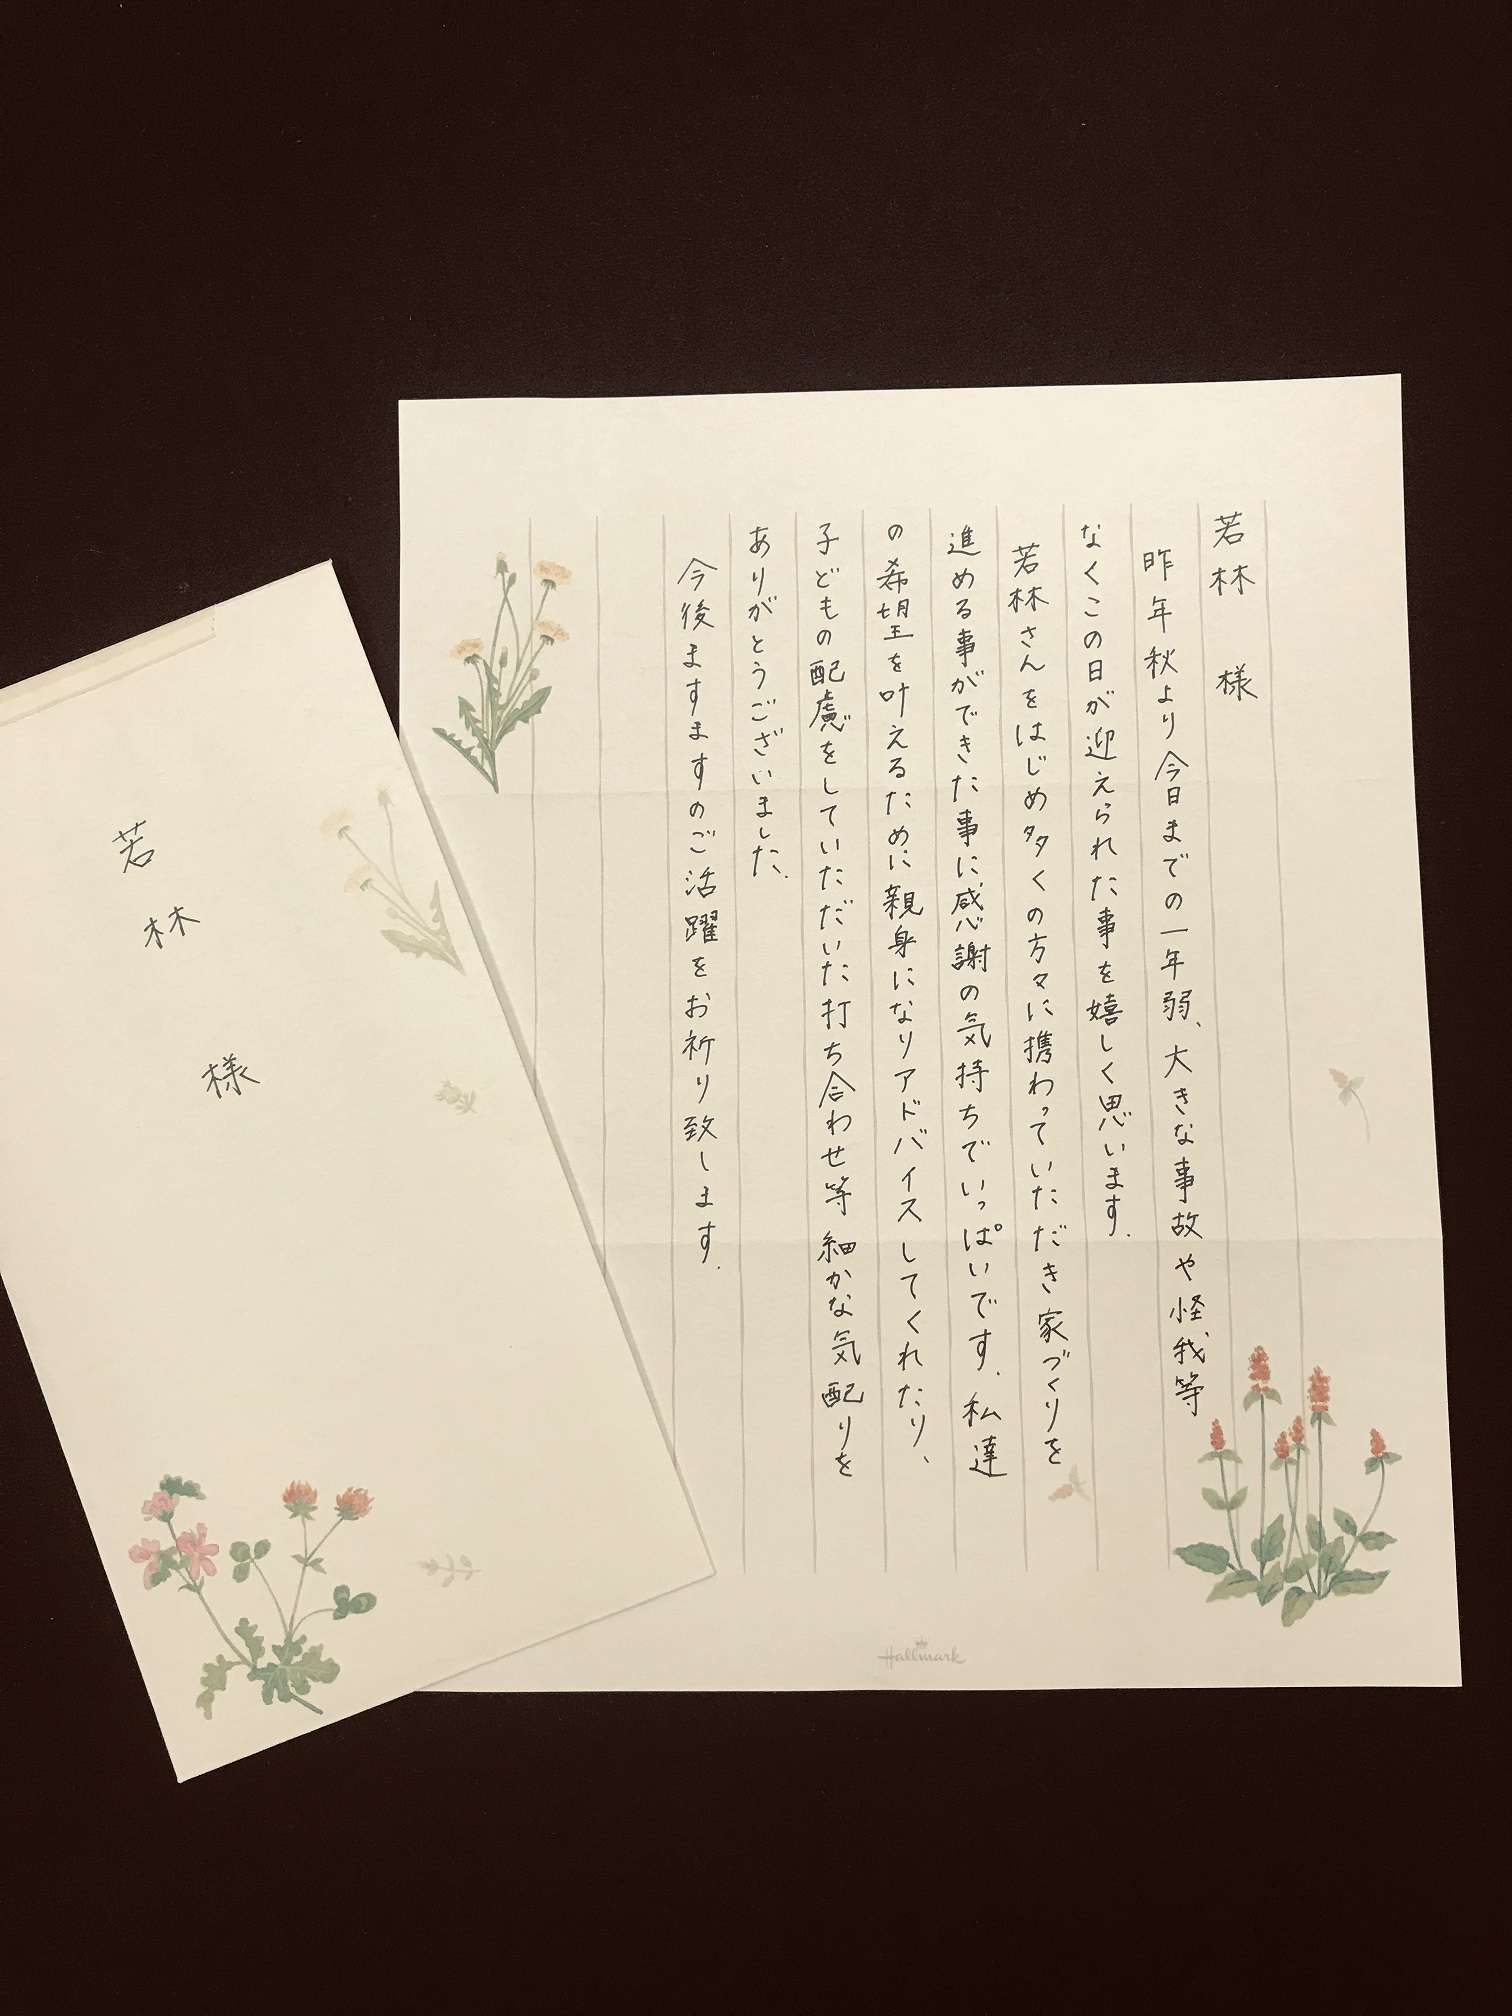 若林 様
昨年秋より今日までの一年弱、大きな事故や怪我等
なくこの日が迎えられた事を嬉しく思います.
若林さんをはじめ多くの方々に携わっていただき家づくりを
進める事ができた事に感謝の気持ちでいっぱいです. 私達
の希望を叶えるために親身になりアドバイスしてくれたり、
子どもの配慮をしていただいた打ち合わせ等細かな気配りを
ありがとうございました.
今後ますますのご活躍をお祈り致します.
Hallmark
若林 様